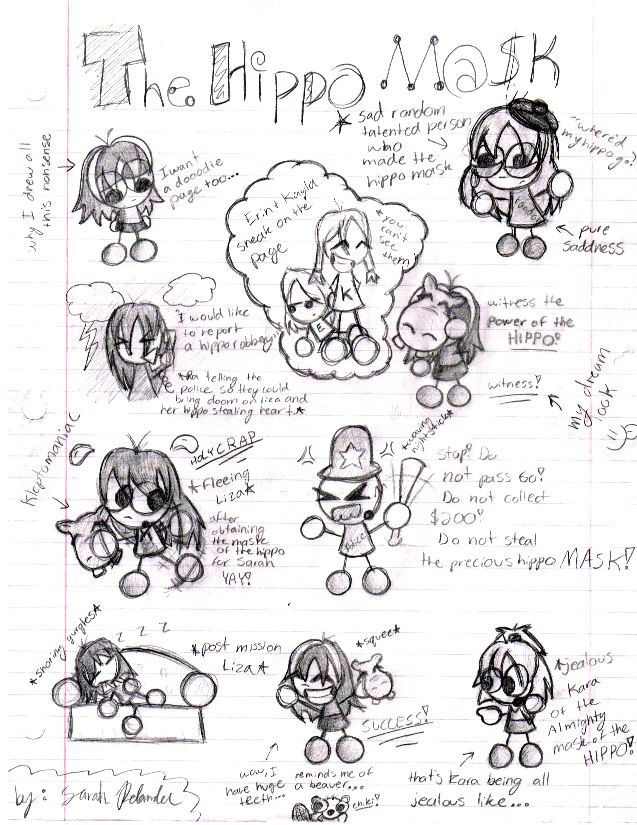 The Hippo Mask
why I drew all
this nonsense
I want
a dooodle
page too...
sad random
talented person
who
made the
hippo mask
~where'd
my hippo go?
pure
saddness
Erin + Kayla
sneak on the
page
*you
can't
see
them
K
E
I would like
to report
a hippo robbery
telling the
police so they could
bring doom on Liza and
her hippo stealing heart*
witness the
power of the
HIPPO!
witness!
my dream
look
Kleptomaniac
HOLY CRAP
*fleeing
Liza*
after
obtaining
the mask
of the hippo
for Sarah
YAY!
*running
nightstick*
Police
Stop! Do
not pass Go!
Do not collect
$200!
Do not steal
the precious hippo MASK!
*snoring gurgles*
z z z
*post mission
Liza*
*squee*
SUCCESS!
wow, I
have huge
teeth...
reminds me of
a beaver...
chiki!
*jealous
Kara
of the
Almighty
mask of the
HIPPO!
that's Kara being all
jealous like...
by: Sarah